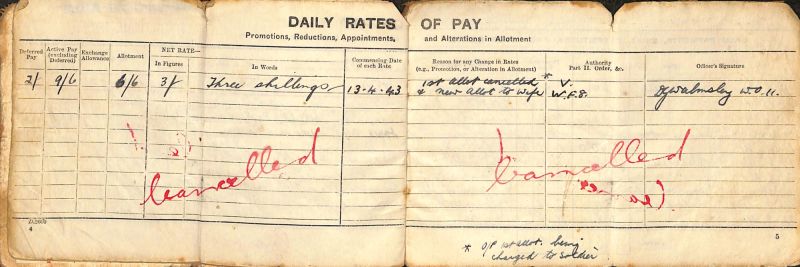 DAILY RATES OF PAY
Promotions, Reductions, Appointments, and Alterations in Allotment
Deferred Pay
Active Pay (excluding Deferred)
Exchange Allowance
Allotment
NET RATE—
In Figures
In Words
Commencing Date of each Rate
Reason for any Change in Rates (e.g., Promotion, or Alteration in Allotment)
Authority Part II. Order, &c.
Officer's Signature
2/ 9/6 6/6 3/ Three shillings 13.4.43 1st allot cancelled * V.
& new allot to wife W.F.S. W.O.II.
Cancelled
Cancelled
4
5
* O/P 1st allot. being
charged to soldier.